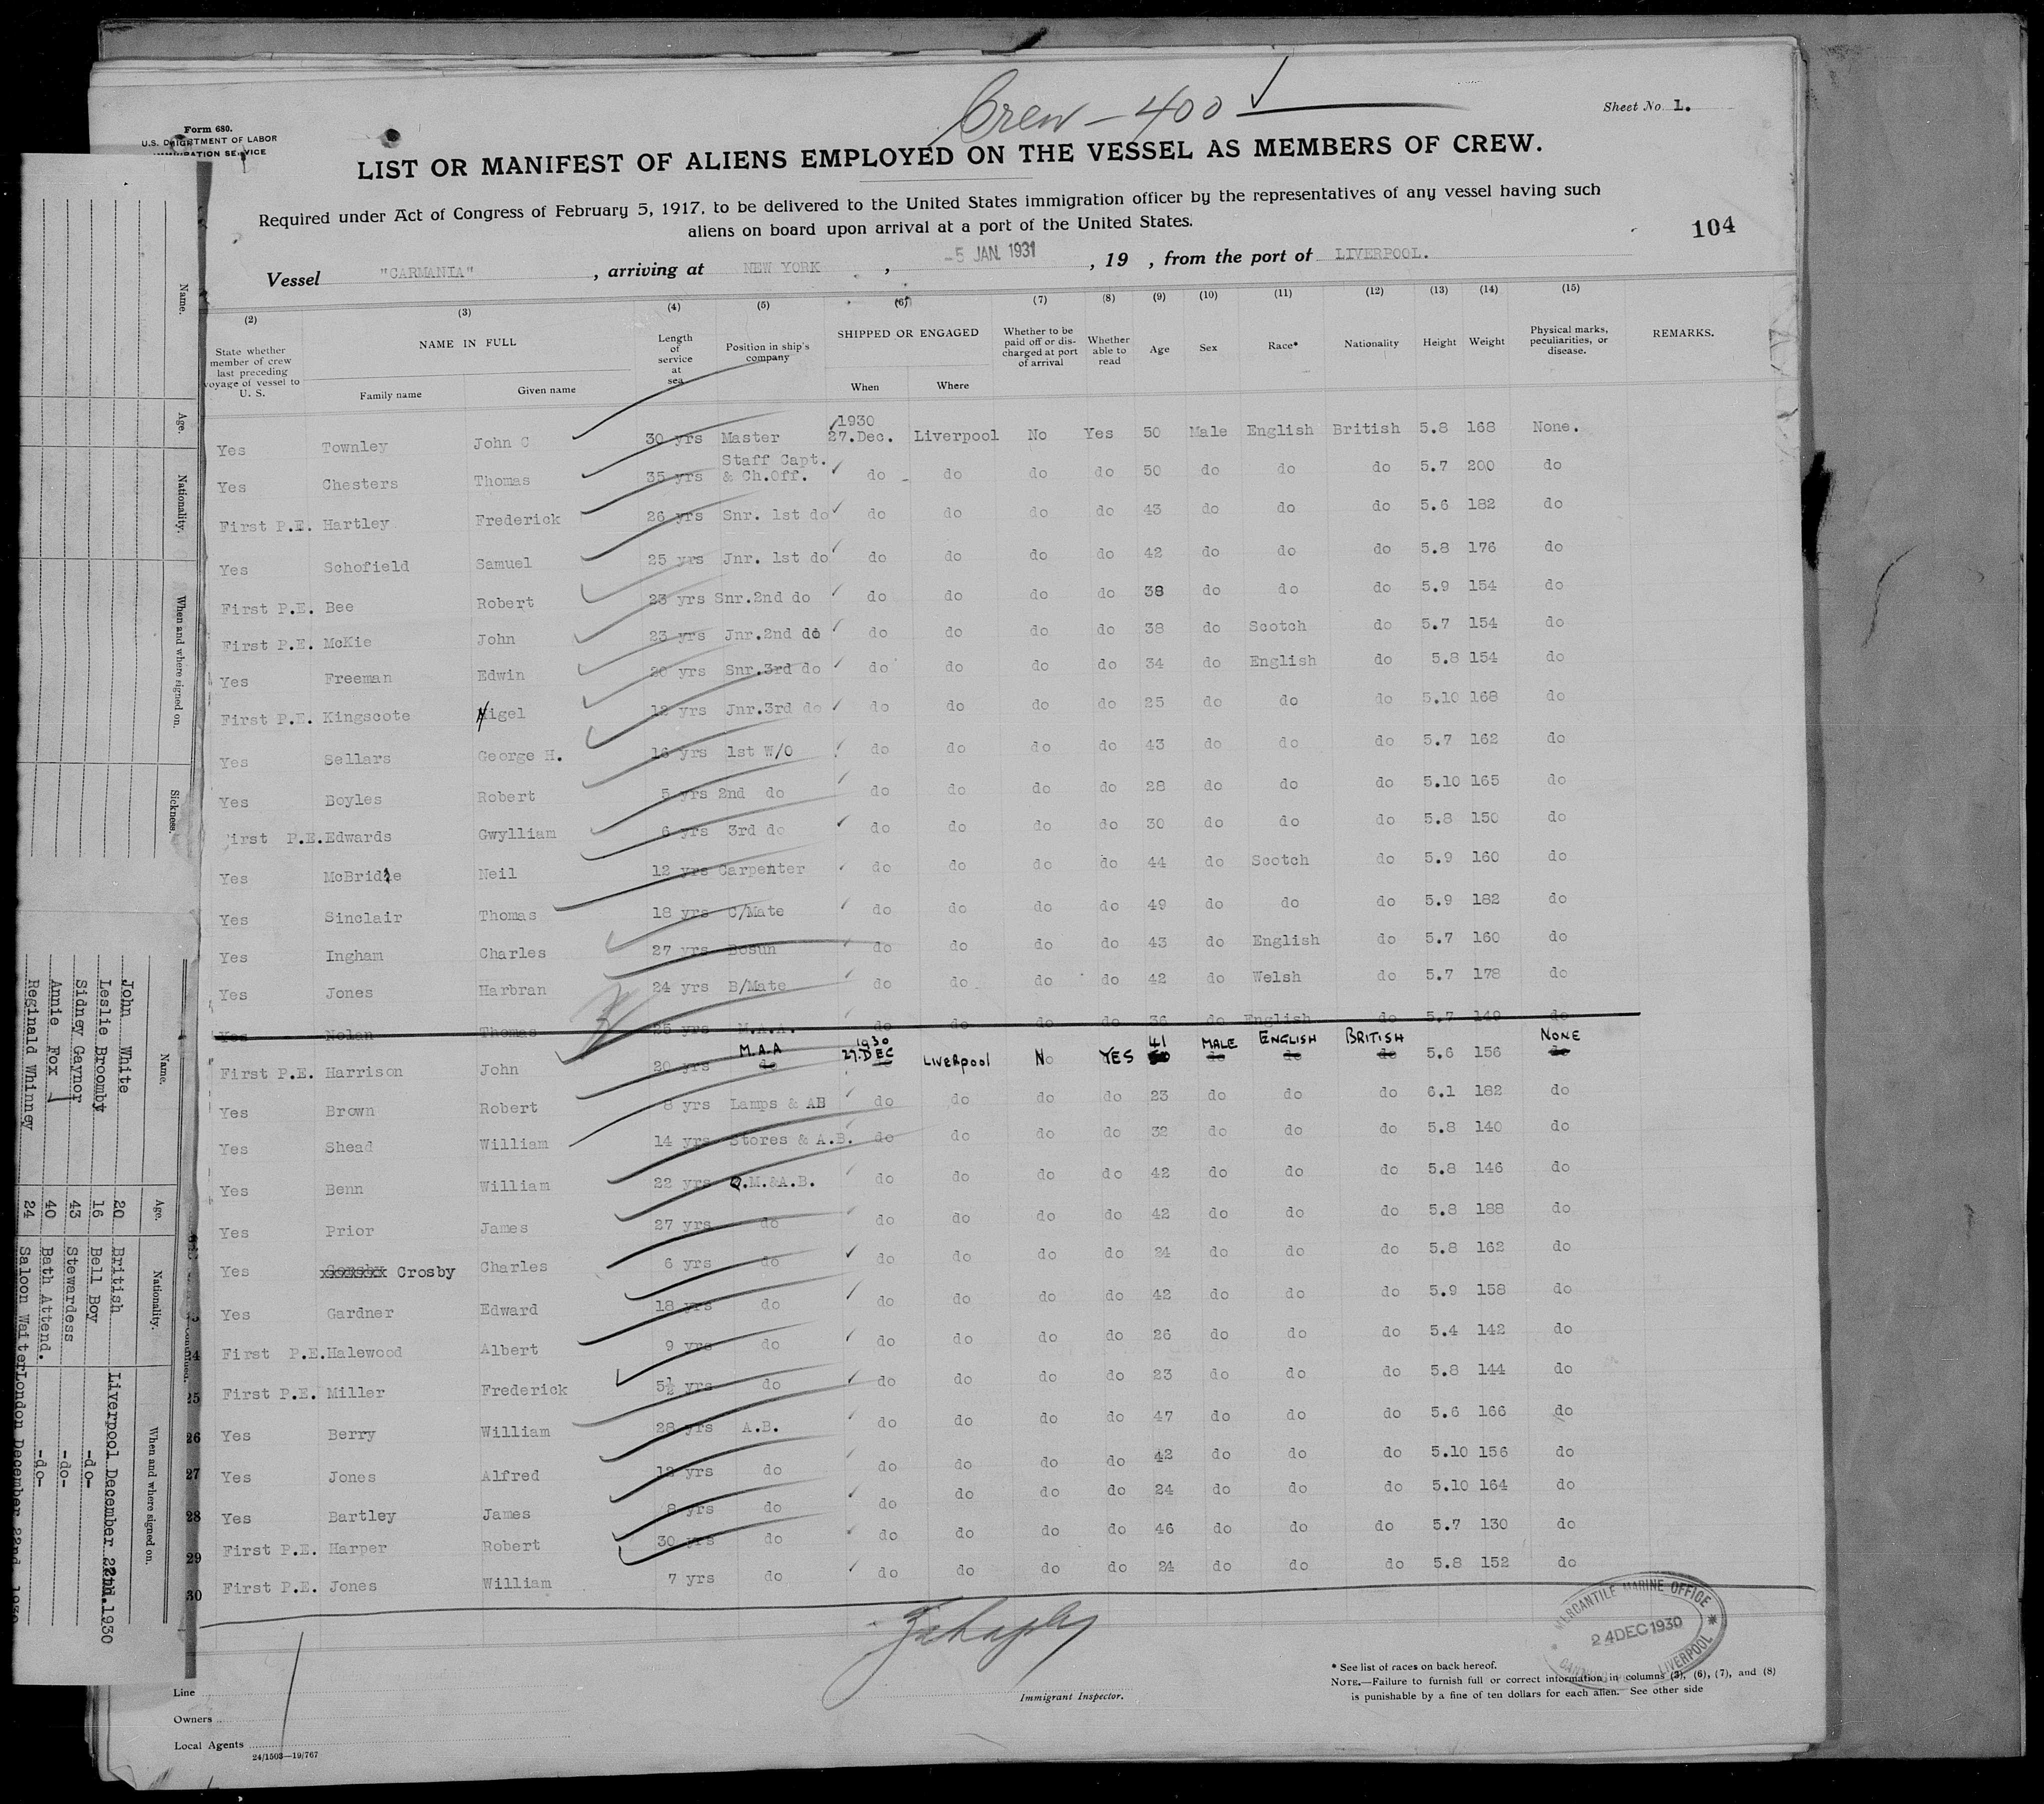 Crew - 400
Sheet No. 1.
Form 680.
U.S. DEPARTMENT OF LABOR
IMMIGRATION SERVICE
LIST OR MANIFEST OF ALIENS EMPLOYED ON THE VESSEL AS MEMBERS OF CREW.
Required under Act of Congress of February 5, 1917, to be delivered to the United States immigration officer by the representatives of any vessel having such
aliens on board upon arrival at a port of the United States.
104
Vessel "CARMANIA" , arriving at NEW YORK , -5 JAN. 1931 , 19 , from the port of LIVERPOOL.
(2) (3) (4) (5) (6) (7) (8) (9) (10) (11) (12) (13) (14) (15)
State whether member of crew last preceding voyage of vessel to U. S. NAME IN FULL Family name Given name Length of service at sea Position in ship's company SHIPPED OR ENGAGED When Where Whether to be paid off or discharged at port of arrival Whether able to read Age Sex Race* Nationality Height Weight Physical marks, peculiarities, or disease. REMARKS.
Yes Townley John C 30 yrs Master 1930 27.Dec. Liverpool No Yes 50 Male English British 5.8 168 None.
Yes Chesters Thomas 35 yrs Staff Capt. & Ch.Off. do do do do 50 do do do 5.7 200 do
First P.E. Hartley Frederick 26 yrs Snr. 1st do do do do do 43 do do do 5.6 182 do
Yes Schofield Samuel 25 yrs Jnr. 1st do do do do do 42 do do do 5.8 176 do
First P.E. Bee Robert 23 yrs Snr.2nd do do do do do 38 do do do 5.9 154 do
First P.E. McKie John 23 yrs Jnr.2nd do do do do do 38 do Scotch do 5.7 154 do
Yes Freeman Edwin 20 yrs Snr.3rd do do do do do 34 do English do 5.8 154 do
First P.E. Kingscote Nigel 12 yrs Jnr.3rd do do do do do 25 do do do 5.10 168 do
Yes Sellars George H. 16 yrs 1st W/O do do do do 43 do do do 5.7 162 do
Yes Boyles Robert 5 yrs 2nd do do do do do 28 do do do 5.10 165 do
First P.E. Edwards Gwylliam 6 yrs 3rd do do do do do 30 do do do 5.8 150 do
Yes McBride Neil 12 yrs Carpenter do do do do 44 do Scotch do 5.9 160 do
Yes Sinclair Thomas 18 yrs C/Mate do do do do 49 do do do 5.9 182 do
Yes Ingham Charles 27 yrs Bosun do do do do 43 do English do 5.7 160 do
Yes Jones Harbran 24 yrs B/Mate do do do do 42 do Welsh do 5.7 178 do
Yes Nolan Thomas 25 yrs M.A.A. do do do do 36 do English do 5.7 149 do
First P.E. Harrison John 20 yrs M.A.A do 1930 27.DEC LIVERPOOL No YES 41 MALE ENGLISH BRITISH 5.6 156 NONE
Yes Brown Robert 8 yrs Lamps & AB do do do do 23 do do do 6.1 182 do
Yes Shead William 14 yrs Stores & A.B. do do do do 32 do do do 5.8 140 do
Yes Benn William 22 yrs Q.M.&A.B. do do do do 42 do do do 5.8 146 do
Yes Prior James 27 yrs do do do do do 42 do do do 5.8 188 do
Yes Crosby Charles 6 yrs do do do do do 24 do do do 5.8 162 do
Yes Gardner Edward 18 yrs do do do do do 42 do do do 5.9 158 do
24 First P.E. Halewood Albert 9 yrs do do do do do 26 do do do 5.4 142 do
25 First P.E. Miller Frederick 5½ yrs do do do do do 23 do do do 5.8 144 do
26 Yes Berry William 28 yrs A.B. do do do do 47 do do do 5.6 166 do
27 Yes Jones Alfred 12 yrs do do do do do 42 do do do 5.10 156 do
28 Yes Bartley James 8 yrs do do do do do 24 do do do 5.10 164 do
29 First P.E. Harper Robert 30 yrs do do do do do 46 do do do 5.7 130 do
30 First P.E. Jones William 7 yrs do do do do do 24 do do do 5.8 152 do
MERCANTILE MARINE OFFICE
24 DEC 1930
LIVERPOOL
Line
Owners
Local Agents
24/1503—19/767
Immigrant Inspector.
* See list of races on back hereof.
NOTE.—Failure to furnish full or correct information in columns (3), (6), (7), and (8)
is punishable by a fine of ten dollars for each alien. See other side
Name. Age. Nationality. When and where signed on. Sickness.
Name. Age. Nationality. When and where signed on.
John White 20 British Liverpool December 22nd.1930
Leslie Broomby 16 Bell Boy -do-
Sidney Gaynor 43 Stewardess -do-
Annie Fox 40 Bath Attend. -do-
Reginald Whinney 24 Saloon Waiter London December 22nd 1930